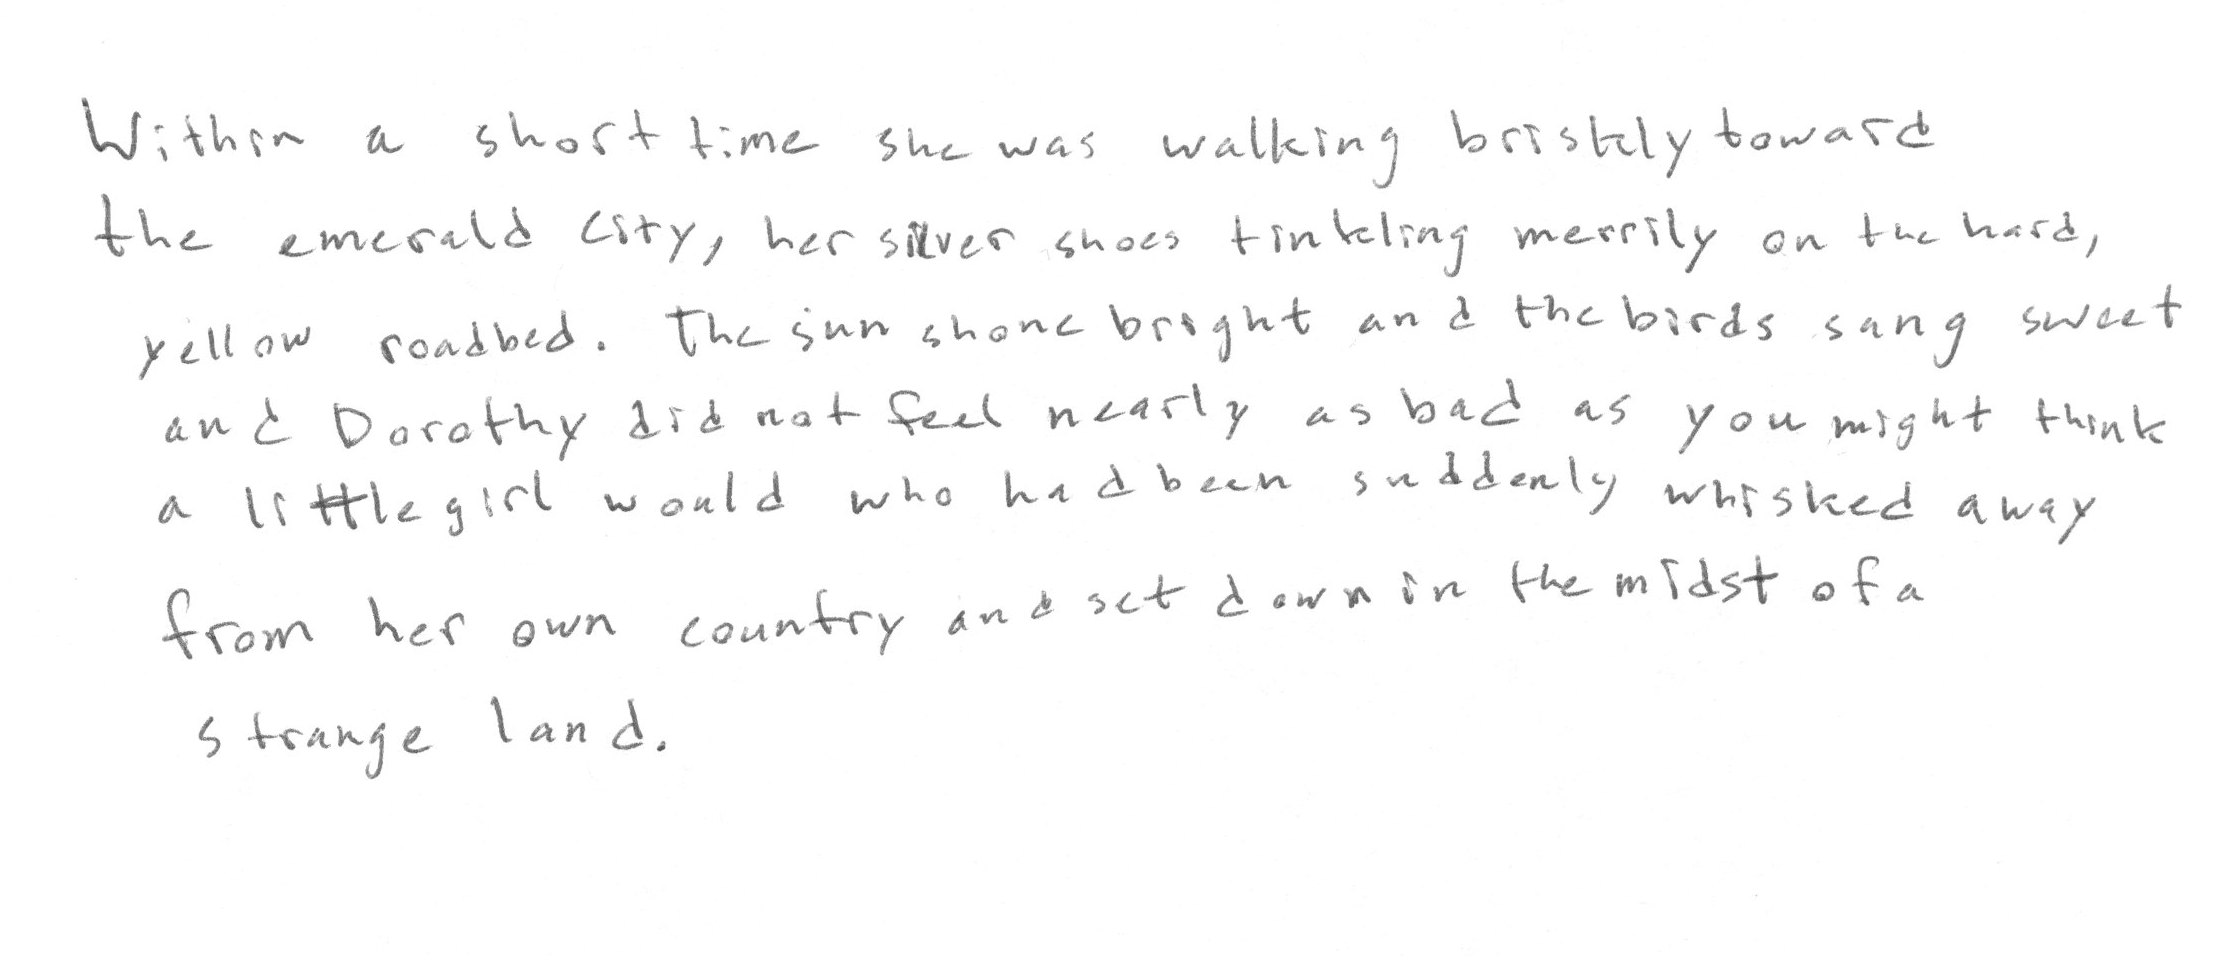 Within a short time she was walking briskly toward
the emerald City, her silver shoes tinkling merrily on the hard,
yellow roadbed. The sun shone bright and the birds sang sweet
and Dorothy did not feel nearly as bad as you might think
a little girl would who had been suddenly whisked away
from her own country and set down in the midst of a
strange land.